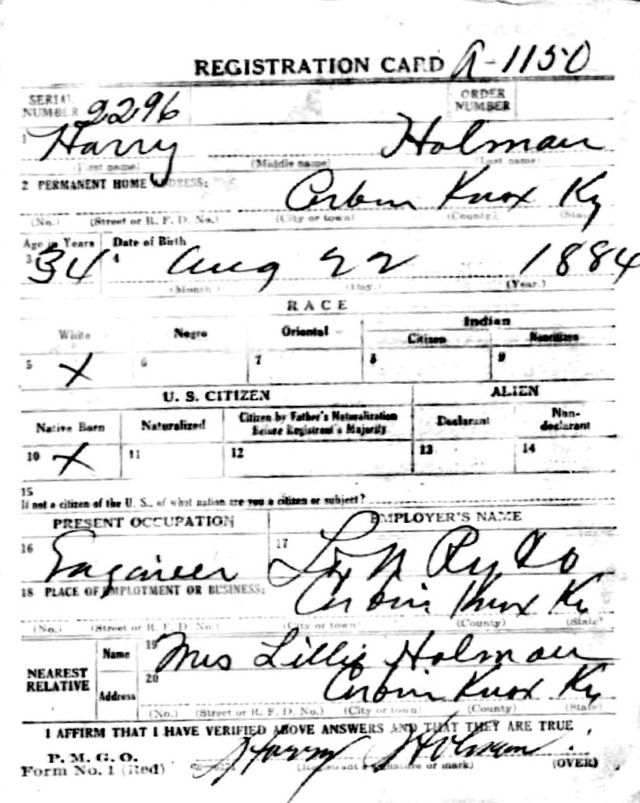 REGISTRATION CARD A-1150
SERIAL NUMBER 2296 ORDER NUMBER
1 Harry Holman
(First name) (Middle name) (Last name)
2 PERMANENT HOME ADDRESS:
Corbin Knox Ky
(No.) (Street or R. F. D. No.) (City or town) (County) (State)
Age in Years Date of Birth
3 34 4 Aug 22 1884
(Month) (Day) (Year)
RACE
White Negro Oriental Indian
Citizen Noncitizen
5 X 6 7 8 9
U. S. CITIZEN ALIEN
Native Born Naturalized Citizen by Father's Naturalization Before Registrant's Majority Declarant Non-declarant
10 X 11 12 13 14
15
If not a citizen of the U. S., of what nation are you a citizen or subject?
PRESENT OCCUPATION EMPLOYER'S NAME
16 Engineer 17 L & N Ry Co
18 PLACE OF EMPLOYMENT OR BUSINESS:
Corbin Knox Ky
(No.) (Street or R. F. D. No.) (City or town) (County) (State)
NEAREST RELATIVE
Name 19 Mrs Lillie Holman
Address 20 Corbin Knox Ky
(No.) (Street or R. F. D. No.) (City or town) (County) (State)
I AFFIRM THAT I HAVE VERIFIED ABOVE ANSWERS AND THAT THEY ARE TRUE
P. M. G. O.
Form No. 1 (Red) Harry Holman (OVER)
(Registrant's signature or mark)